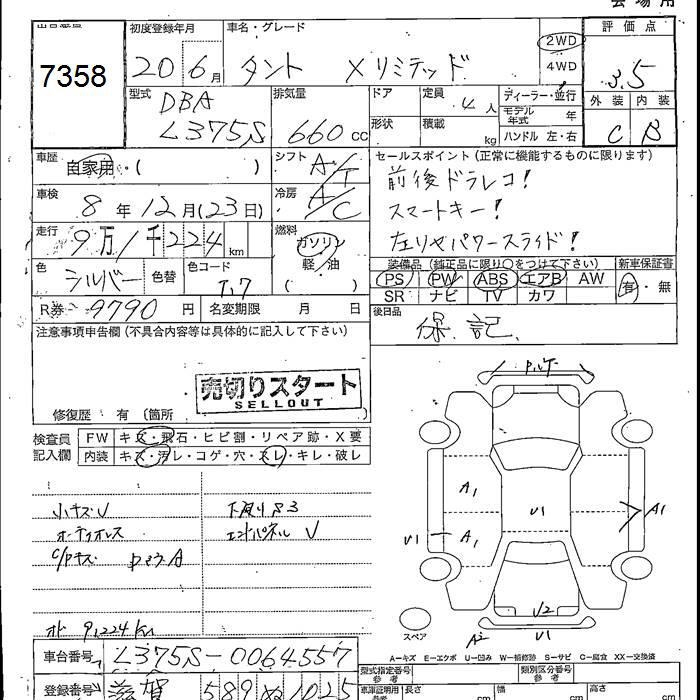 会場用
出品番号 7358
初度登録年月 20年6月
車名・グレード タント Xリミテッド
2WD 4WD
評価点 3.5
外装 C 内装 B
型式 DBA L375S
排気量 660cc
ドア
定員 4人
ディーラー・並行
モデル年式 年
形状
積載 kg
ハンドル 左・右
車歴 自家用・( )
シフト A/T
セールスポイント(正常に機能するものに限ります)
前後ドラレコ!
車検 8年12月(23日)
冷房 A/C
スマートキー!
走行 9万1千224km
燃料 ガソリン 軽油 ( )
左リヤパワースライド!
色 シルバー 色替
色コード T17
装備品(純正品に限り○をつけて下さい)
PS PW ABS エアB AW
SR ナビ TV カワ
新車保証書 有・無
R券 9790円 名変期限 月 日
後日品 保.記.
注意事項申告欄(不具合内容等は具体的に記入して下さい)
売切りスタート
SELLOUT
修復歴 有(箇所 )
検査員記入欄
FW キズ・飛石・ヒビ割・リペア跡・X要
内装 キズ・汚レ・コゲ・穴・スレ・キレ・破レ
小キズU
オーディオレス
エンドパネル U
オド 91,224km
A1 U1 A1
U1 A1
U2
A2 U1
スペア
A-キズ E-エクボ U-凹み W-補修跡 S-サビ C-腐食 XX-交換済
車台番号 L375S-0064557
型式指定番号 参考
類別区分番号 参考
登録番号 滋賀 589 1025
車庫証明用 参考 長さ 幅 高さ